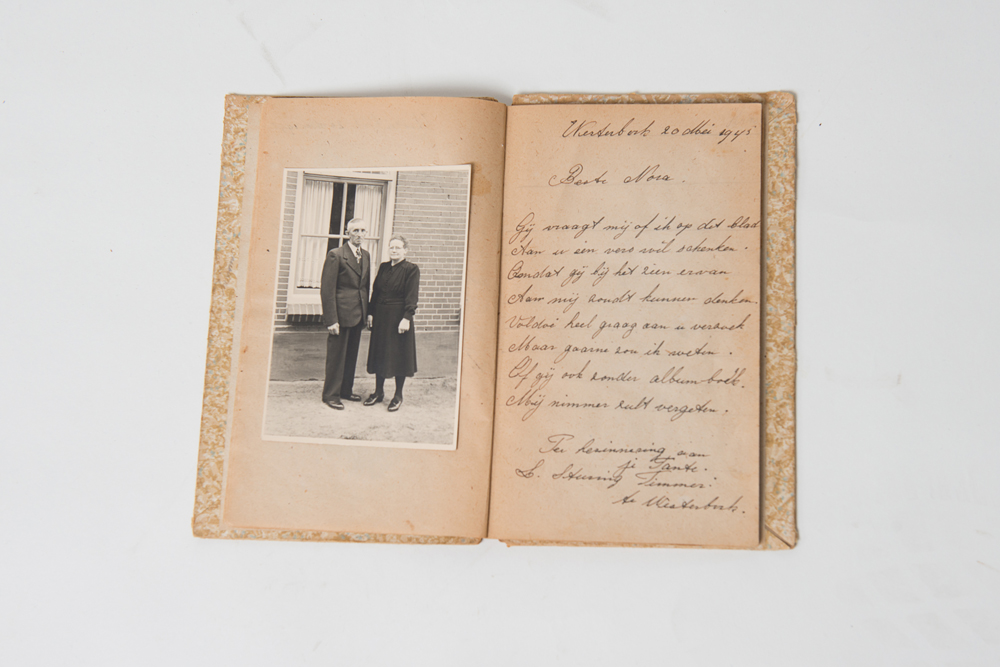 Westerbork 20 Mei 1945
Beste Nora.
Gij vraagt mij of ik op dit blad
Aan u een vers wil schenken.
Opdat gij bij het zien ervan
Aan mij zoudt kunnen denken.
Voldoe heel graag aan u verzoek
Maar gaarne zou ik weten.
Of gij ook zonder album-boek.
Mij nimmer zult vergeten.
Ter herinnering aan
je Tante.
L. Timmer.
te Westerbork.